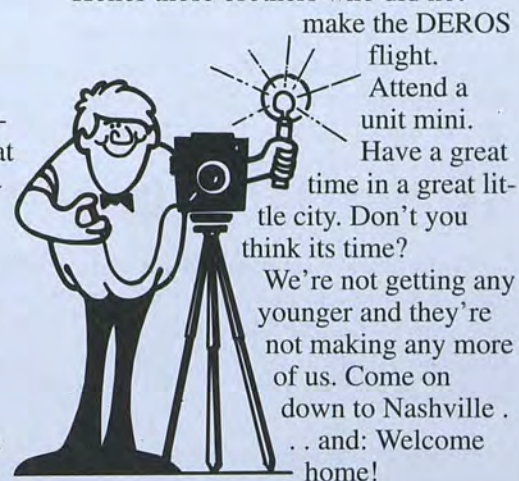 make the DEROS
flight.
Attend a
unit mini.
Have a great
time in a great lit-
tle city. Don't you
think its time?
We're not getting any
younger and they're
not making any more
of us. Come on
down to Nashville .
. . and: Welcome
home!